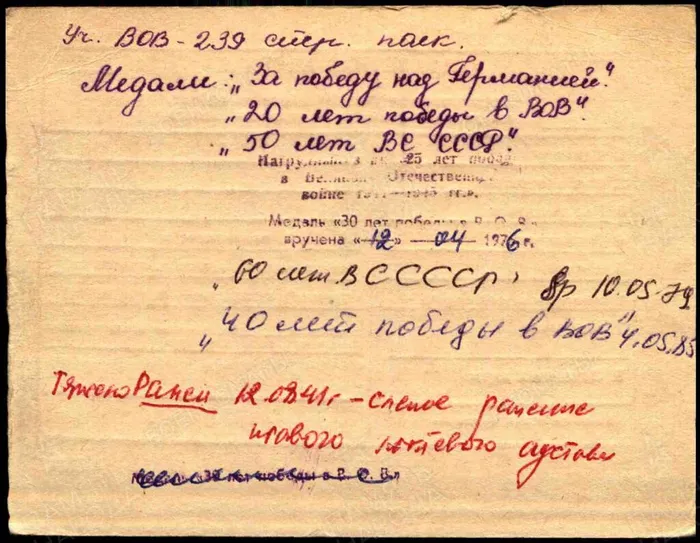 Уч. ВОВ - 239 стр. полк.
Медали: „За победу над Германией".
„20 лет победы в ВОВ".
„50 лет ВС СССР".
Нагрудный знак «25 лет победы
в Великой Отечественной
войне 1941-1945 гг.».
Медаль «30 лет победы в В. О. В.»
вручена «12» 04 1976 г.
„60 лет ВС СССР" вр 10.05.79
„40 лет победы в ВОВ" 4.05.85
Тяжело Ранен 12.08.41г - слепое ранение
левого локтевого сустава
Медаль «30 лет победы в В. О. В.»